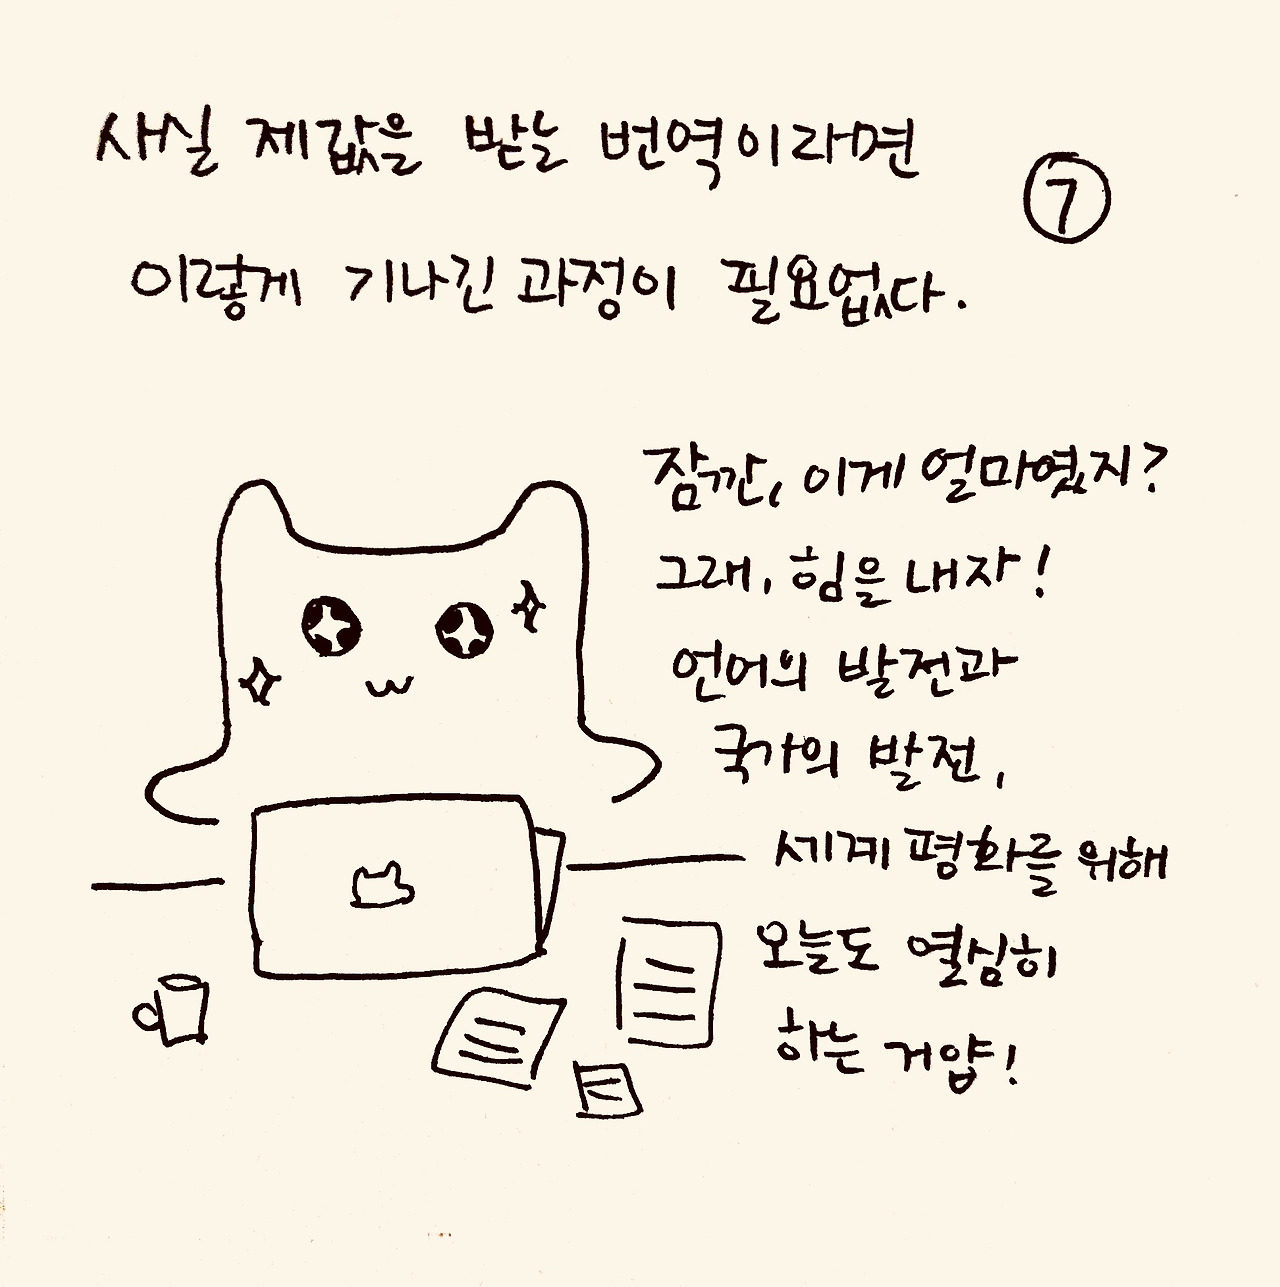 사실 제값을 받는 번역이라면
⑦
이렇게 기나긴 과정이 필요없다.
잠깐, 이게 얼마였지?
그래, 힘을 내자!
언어의 발전과
국가의 발전,
세계 평화를 위해
오늘도 열심히
하는 거얍!